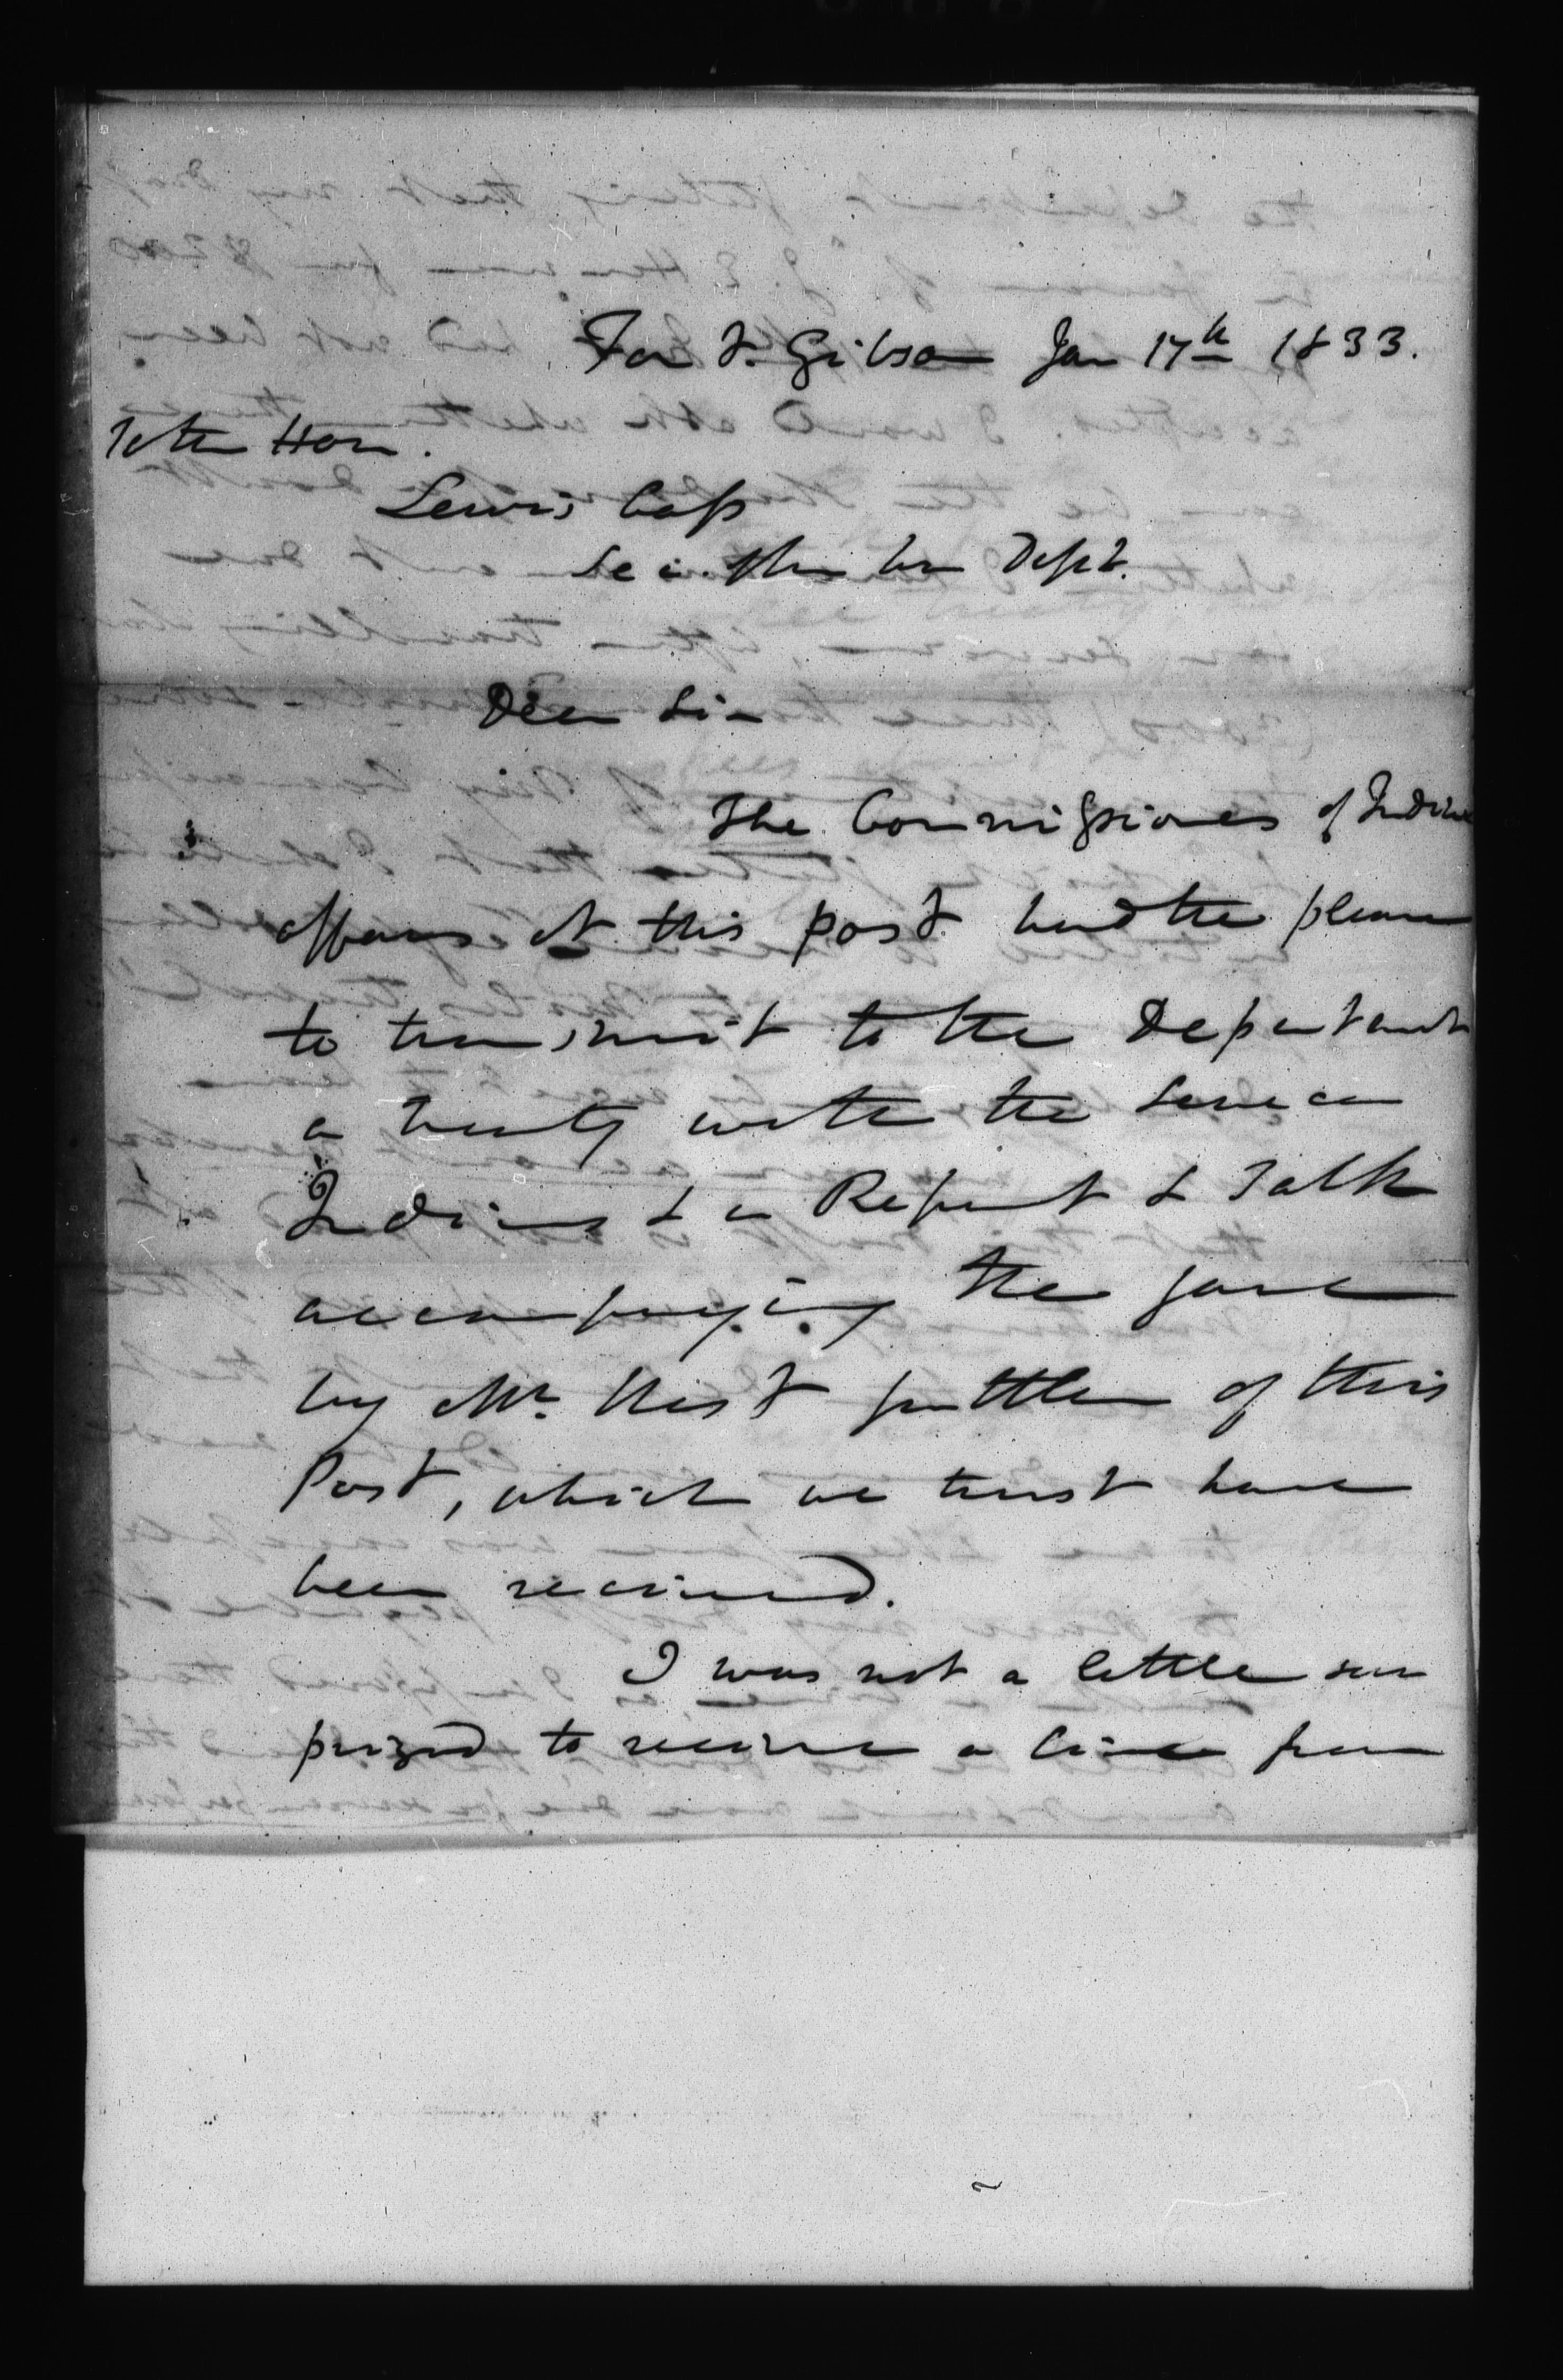 Fort Gibson Jan 17th 1833.
To the Hon.
Lewis Cass
Sec. of the War Dept.
Dear Sir
The Commissioners of Indian
affairs at this post had the pleasure
to transmit to the Department
a treaty with the Seneca
Indians & a Report & Talk
accompanying the same
by Mr. suttler of this
Post, which we trust have
been received.
I was not a little sur
prized to receive a line from